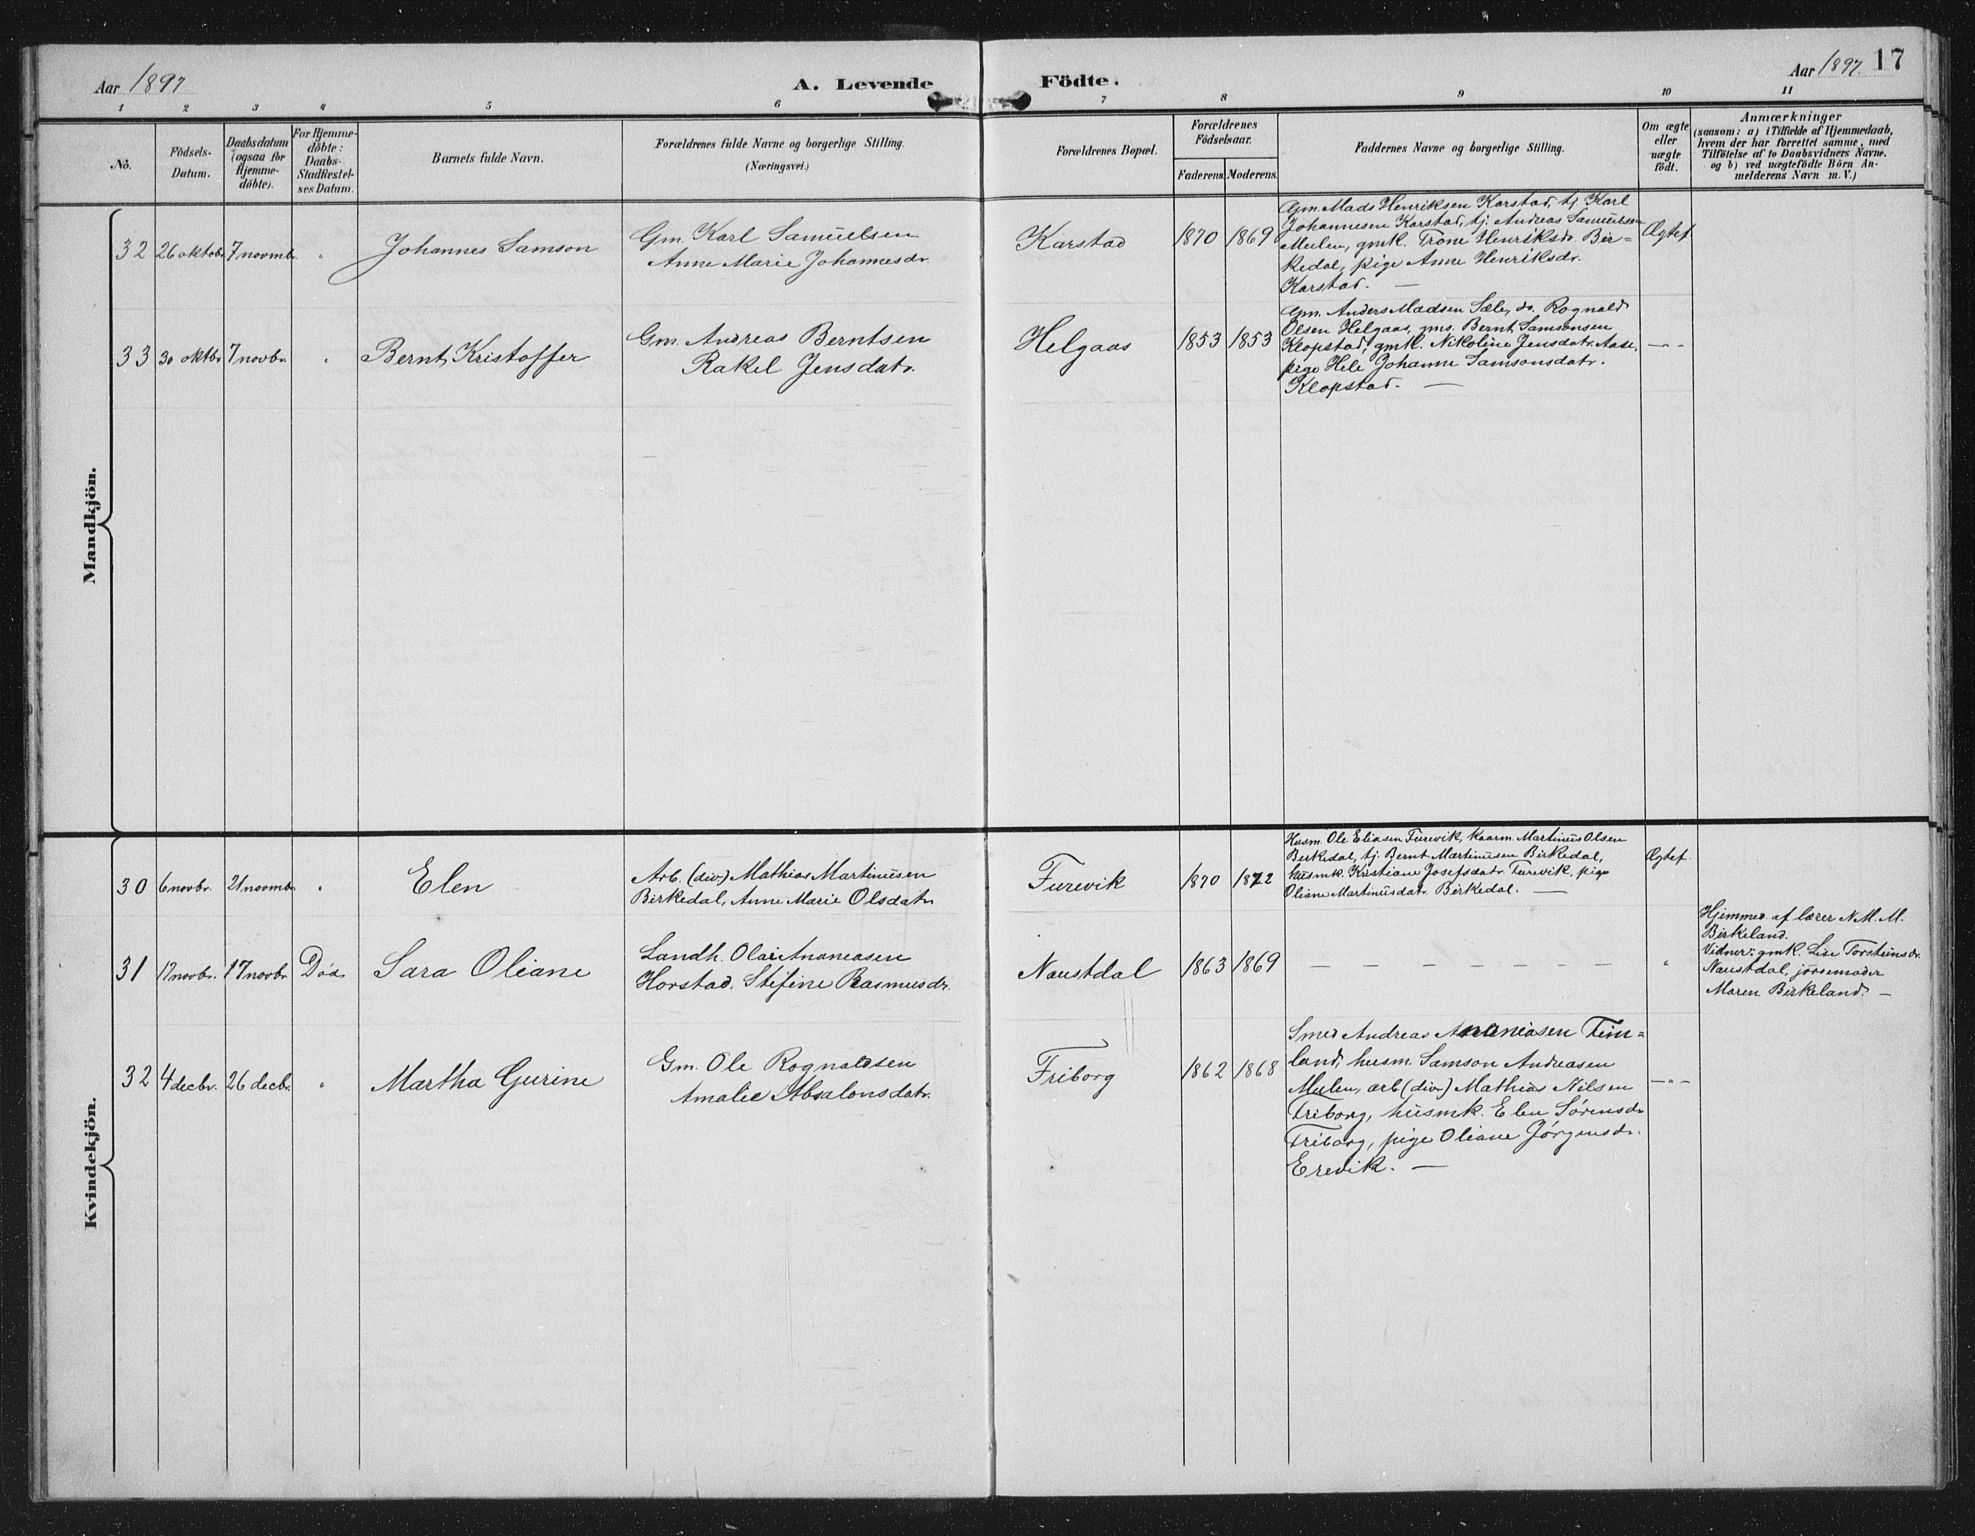 Aar 1897
A. Levende Födte.
Aar 1897. 17
1 2 3 4 5 6 7 8 9 10 11
No.
Födsels-
Datum.
Daabsdatum
(ogsaa for
Hjemme-
döbte).
For Hjemme-
döbte:
Daabs-
Stadfæstel-
ses Datum.
Barnets fulde Navn.
Forældrenes fulde Navne og borgerlige Stilling.
(Næringsvei.)
Forældrenes Bopæl.
Forældrenes
Födselsaar.
Faderens. Moderens.
Faddernes Navne og borgerlige Stilling.
Om ægte
eller
uægte
födt.
Anmærkninger
(saasom: a) i Tilfælde af Hjemmedaab,
hvem der har forrettet samme, med
Tilföielse af to Daabsvidners Navne,
og b) ved uægtefödte Börn An-
melderens Navn m. V.)
Mandkjön.
32 26 oktob. 7 novmb. " Johannes Samson
Gm. Karl Samuelsen
Anne Marie Johannesdr.
Karstad 1870 1869
Gm. Mads Henriksen Karstad, tj. Karl
Johannesen Karstad, tj. Andreas Samuelsen
Mulen, gmk. Trone Henriksdr. Bir=
kedal, pige Anne Henriksdr.
Karstad. —
Ægtef
33 30 oktbr 7 novbr. " Bernt Kristoffer
Gm. Andreas Berntsen
Rakel Jensdatr.
Helgaas 1853 1853
Gm. Anders Madsen Sæle, do. Rognald
Olsen Helgaas, gms. Bernt Samsonsen
Klopstad, gmk. Nikoline Jensdatr. Aase,
pige Hele Johanne Samsonsdatr.
Klopstad. —
—"—
Kvindekjön.
30 6 novbr. 21 novmb. " Elen
Arb. (div.) Mathias Martinusen
Birkedal, Anne Marie Olsdatr.
Furevik 1870 1872
Husm. Ole Eliasen Furevik, kaarm. Martinus Olsen
Birkedal, tj. Bernt Martinusen Birkedal,
husmk. Kristiane Josefsdatr. Furevik, pige
Oliane Martinusdatr. Birkedal. —
Ægtef.
31 17 novbr. 17 novbr. Død Sara Oliane
Landh. Olai Ananiasen
Horstad. Stifine Rasmusdr.
Naustdal 1863 1869
— — — — — — —
"
Hjemmed. af lærer N. M. M.
Birkeland.
Vidner: gmk. Lise Torsteinsdr.
Naustdal, jorsemoder
Maren Birkeland. —
32 4 decbr. 26 decb. " Martha Gurine
Gm. Ole Rognaldsen
Amalie Absalonsdatr.
Friborg 1862 1868
Smed Andreas Ananiasen Feim=
land, husm. Samson Andreasen
Mulen, arb (div.) Mathias Nilsen
Friborg, husmk. Elen Sørensdr
Friborg, pige Oliane Jørgensdr.
Erevik. —
—"—